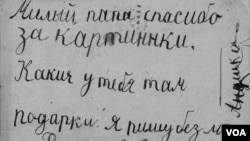 Милый папа спасибо
за картиннки.
Какие у тебя там
подарки. я пишу без
Андрюша
VOA